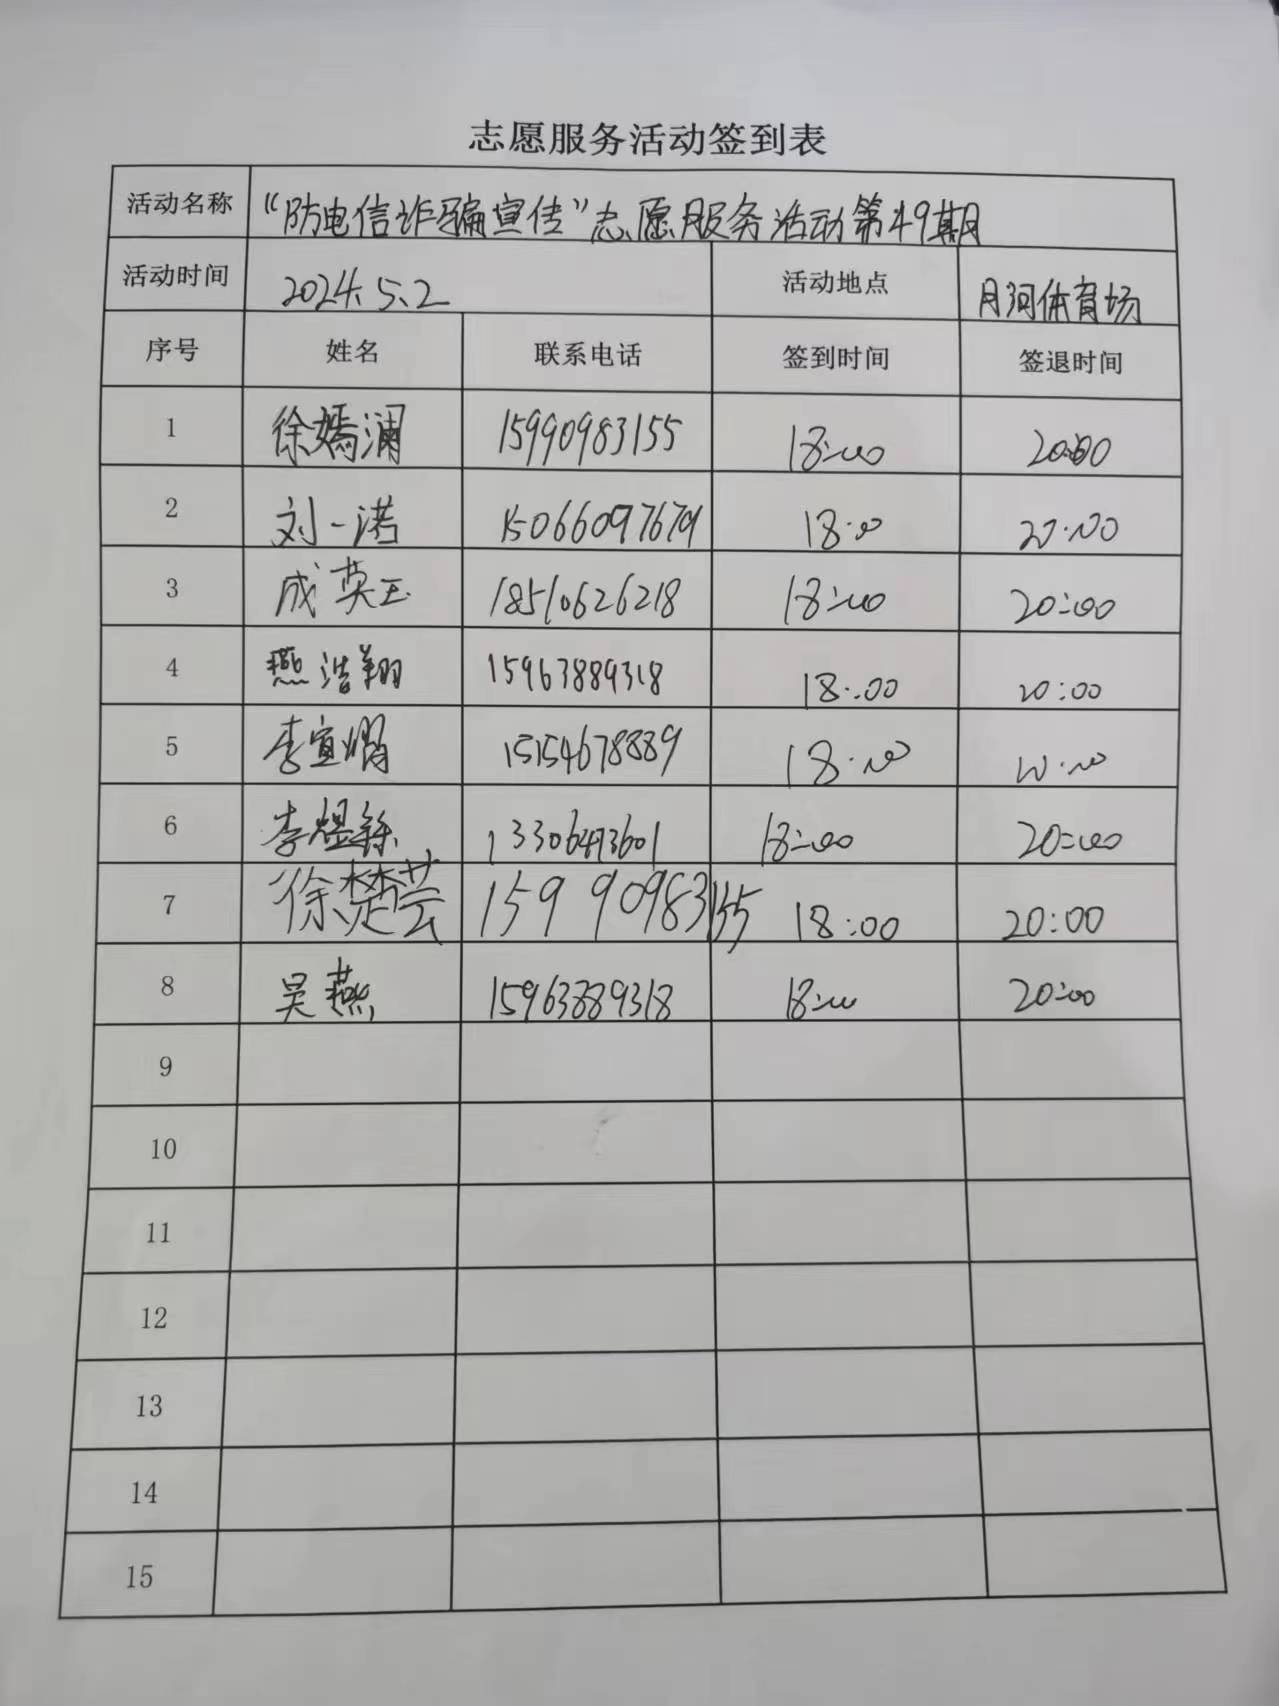 志愿服务活动签到表
活动名称 “防电信诈骗宣传”志愿服务活动第49期
活动时间 2024.5.2 活动地点 月河体育场
序号 姓名 联系电话 签到时间 签退时间
1 徐嫣澜 15990983155 18:00 20:00
2 刘一诺 15066097679 18:00 20:00
3 成英玉 18510626218 18:00 20:00
4 燕浩翔 15963889318 18:00 20:00
5 李宣熠 15154678889 18:00 20:00
6 李煜 13306473601 18:00 20:00
7 徐楚芸 15990983155 18:00 20:00
8 吴燕 15963889318 18:00 20:00
9
10
11
12
13
14
15